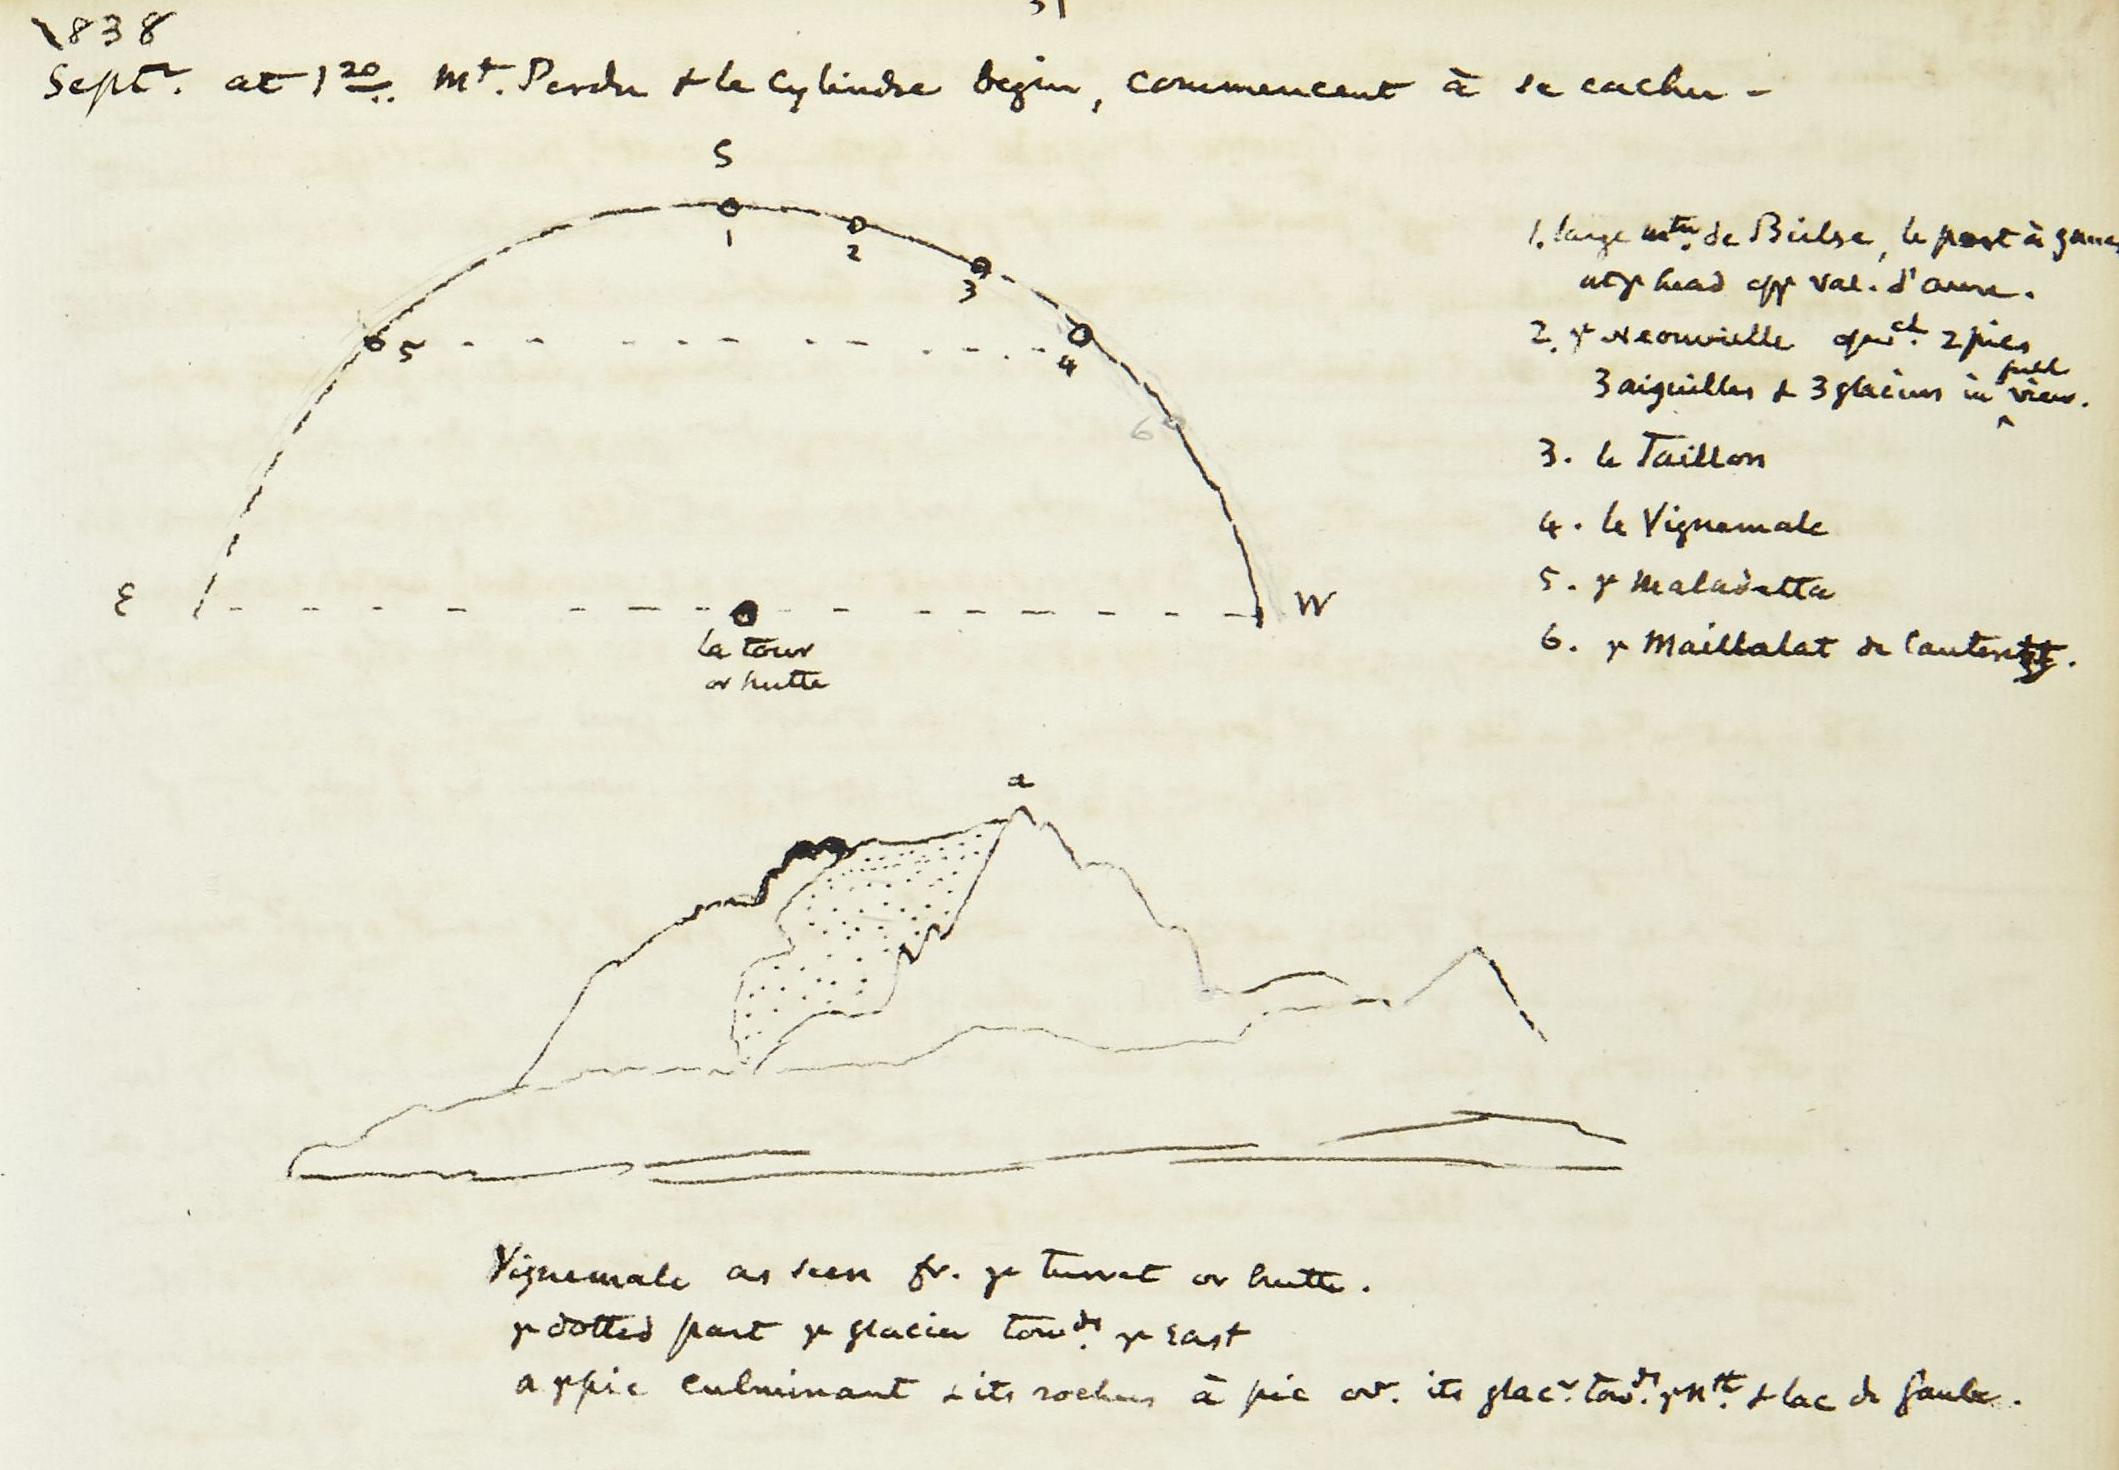 1838
Sept.^r at 1 20/.. M^t. Perdu + le Cylindre begin, commencent à se cacher -
S
1
2
3
5
4
6
E
W
la tour
or hutte
1. large mtn. de Bielse, le port à
at yr head opp val. d'aure.
2. yr Neouvielle 2 pics
full
3 aiguilles + 3 glaciers in ^ view.
3. le Taillon
4. le Vignemale
5. yr Maladetta
6. yr Maillabat de Cauteretz.
a
Vignemale as seen fr. yr turret or hutte.
yr dotted part yr glacier tow^ds. yr East
a yr pic culminant + its rochers à pic ov^r. its glac^r. tow^ds. yr N^th. + lac de Gaube.